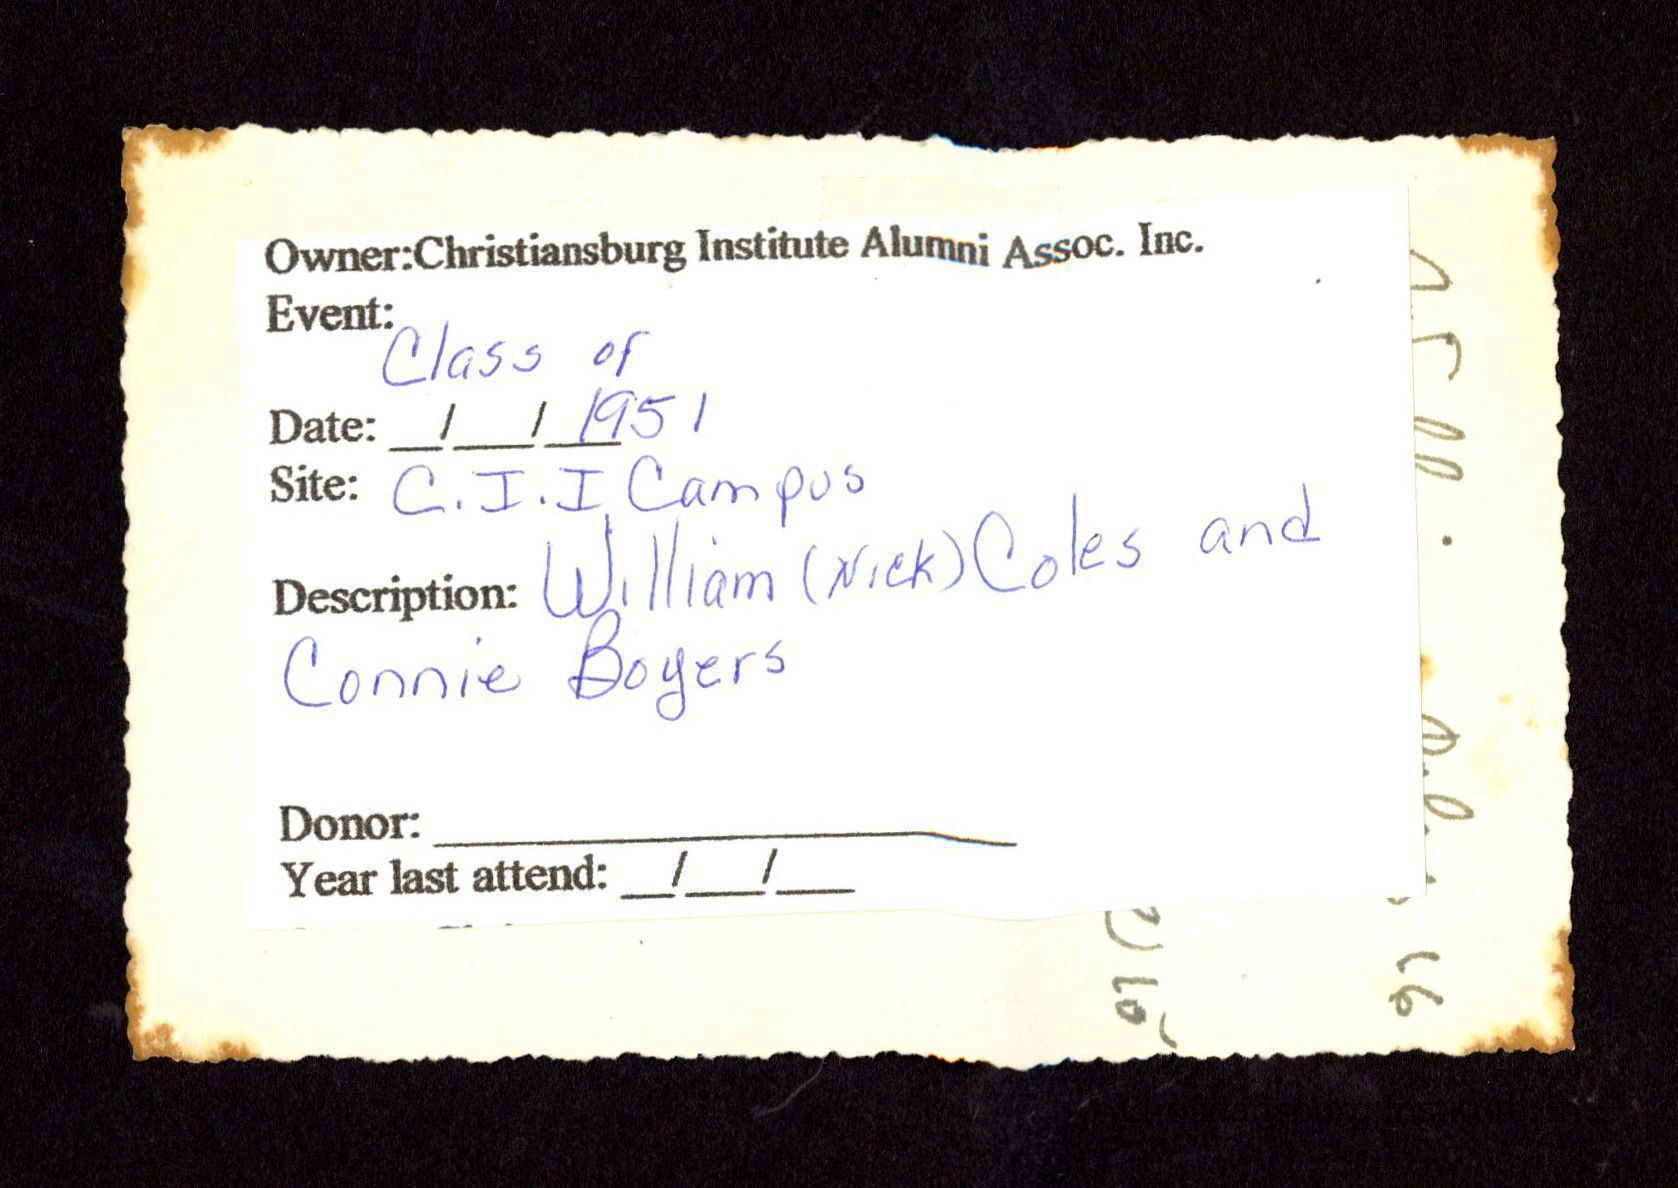 Owner:Christiansburg Institute Alumni Assoc. Inc.
Event:
Class of
Date: __/__/__1951
Site: C.I.I Campus
Description: William (Nick) Coles and
Connie Boyers
Donor: ____________________
Year last attend: __/__/__